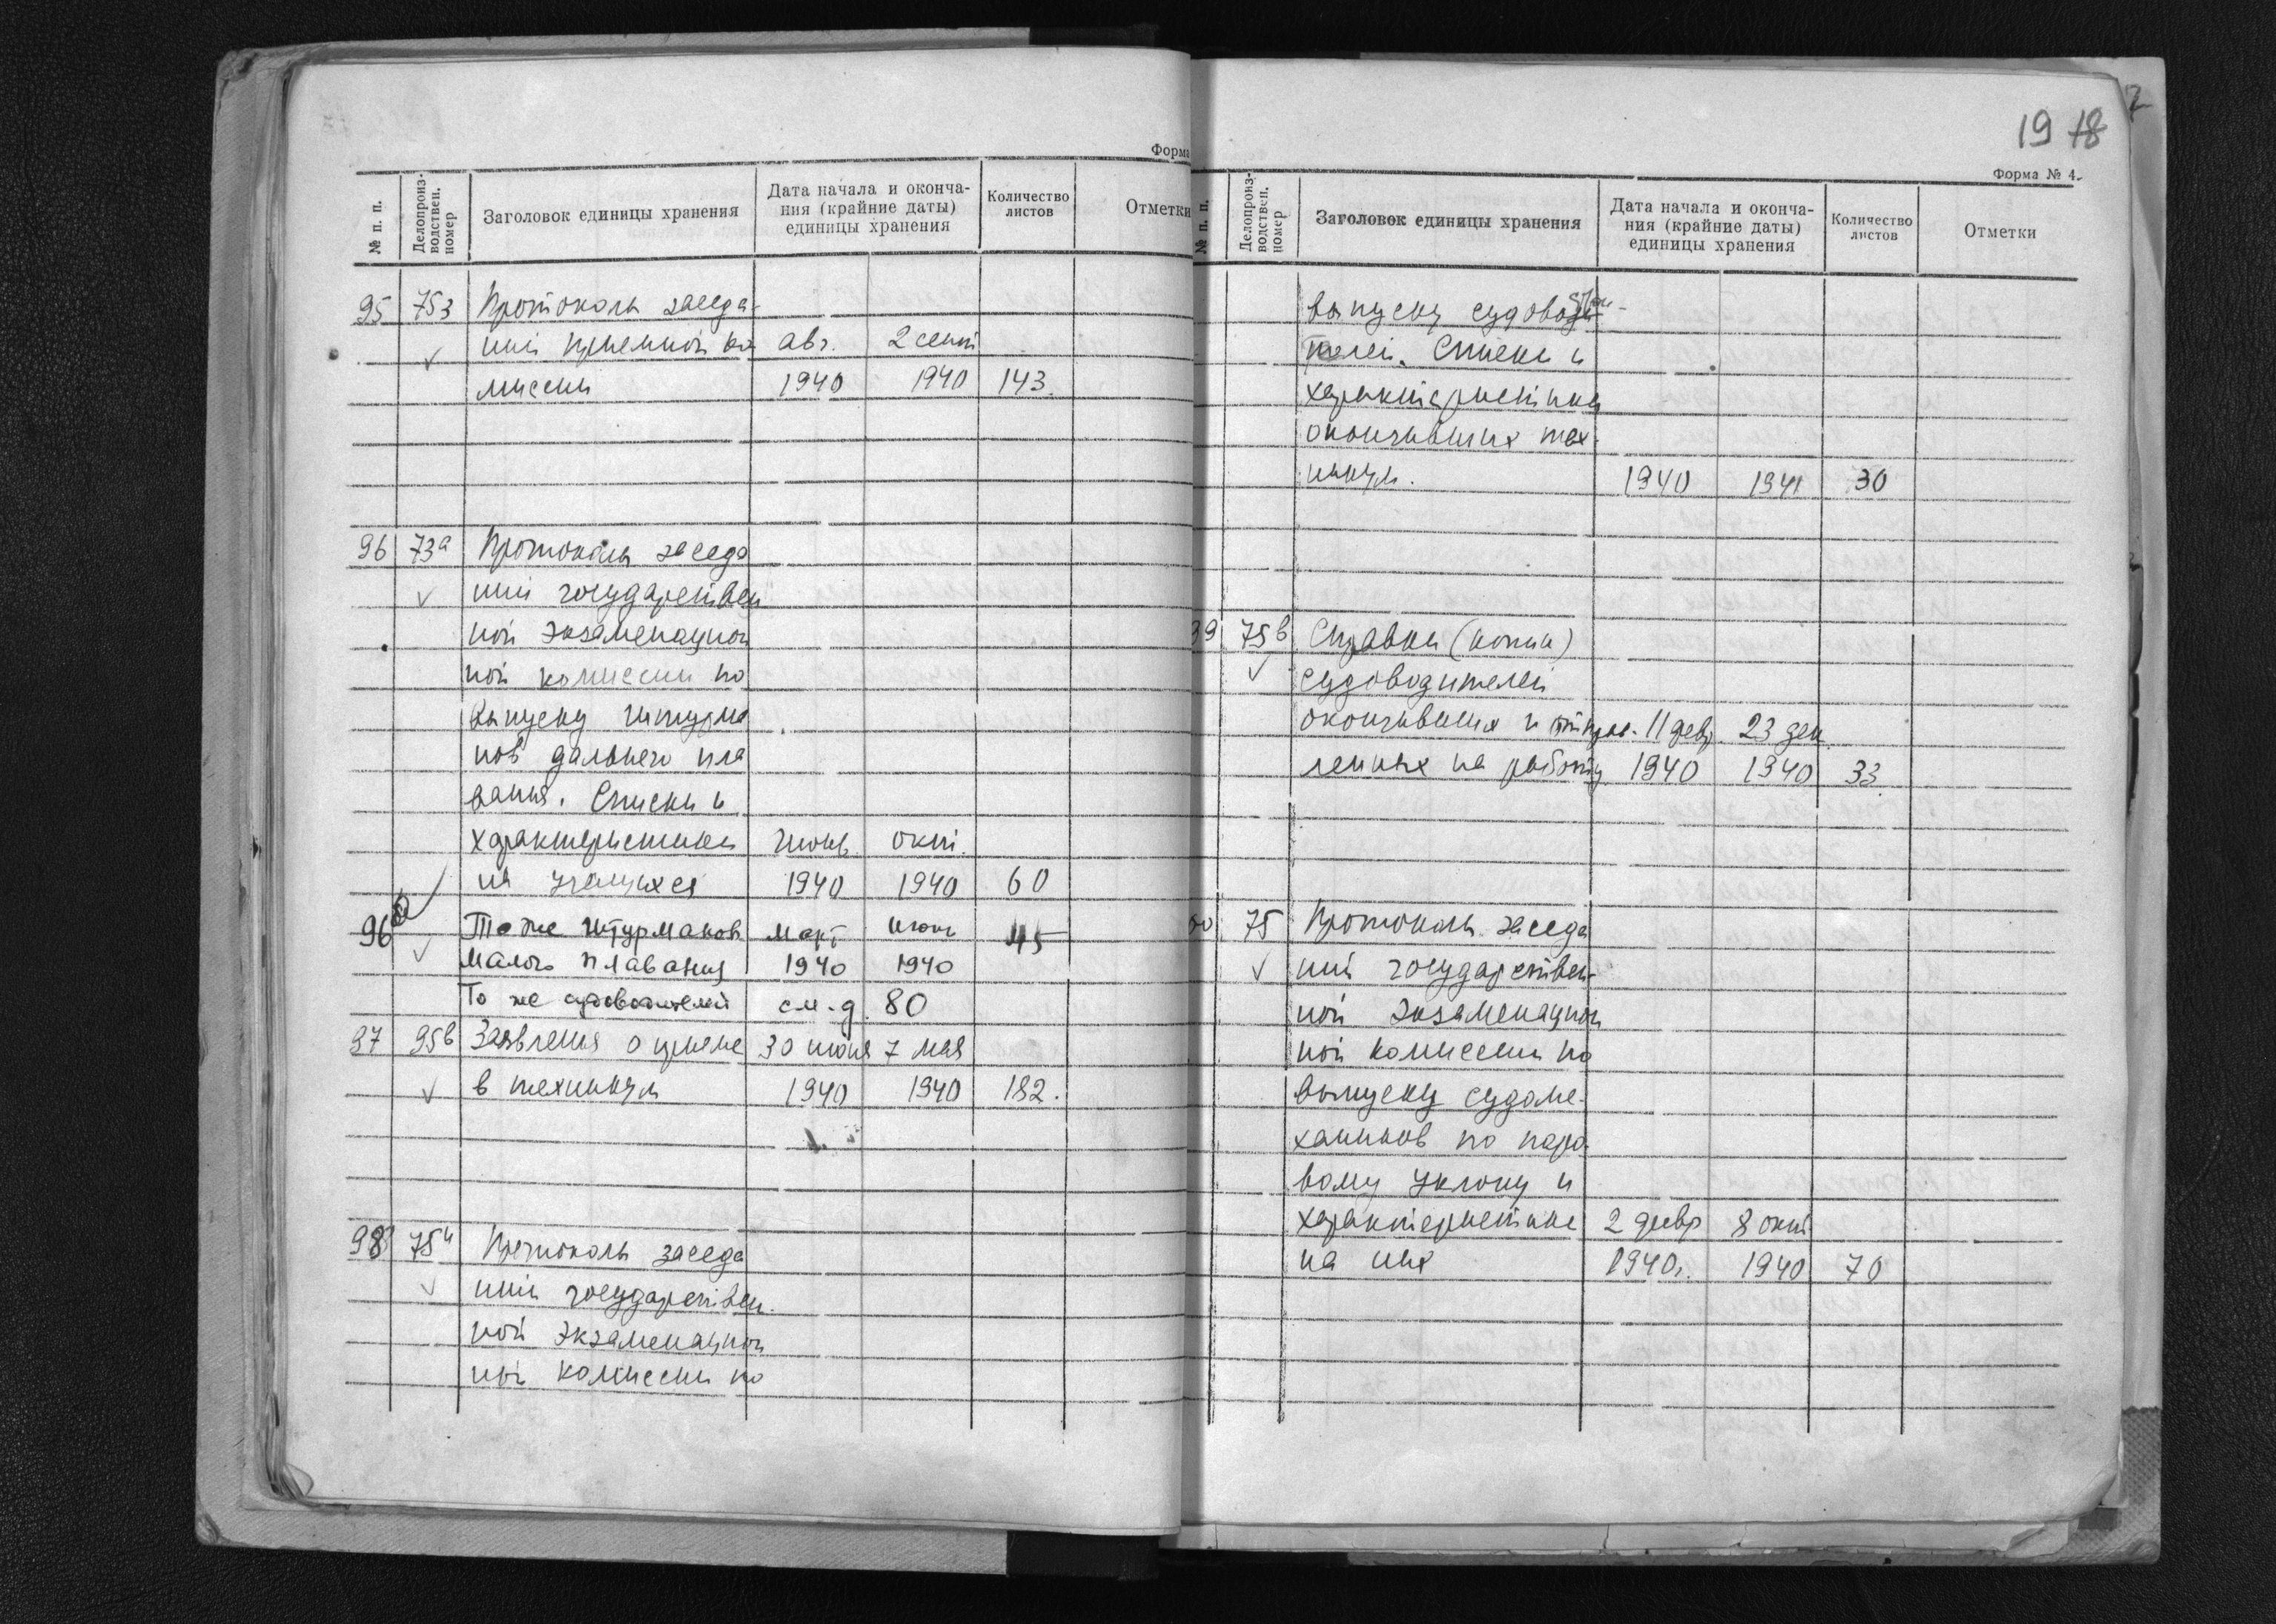 Форма
№ п. п.
Делопроиз-
водствен.
номер
Заголовок единицы хранения
Дата начала и оконча-
ния (крайние даты)
единицы хранения
Количество
листов
Отметки
95 75з Протоколы заседа-
ний приемной ко авг. 2 сент
миссии 1940 1940 143.
96 73а Протоколы заседа
ний государствен
ной экзаменацион
ной комиссии по
выпуску штурма
нов дальнего пла
вания. Списки и
характеристики июнь окт.
на учащихся 1940 1940 60
96а То же штурманов март июнь 45
малого плавания 1940 1940
То же судоводителей см. д. 80
97 95в Заявления о приеме 30 июня 7 мая
в техникум 1940 1940 182.
98 75и Протоколы заседа
ний государствен-
ной экзаменацион
ной комиссии по
19 18
2
Форма № 4.
№ п. п.
Делопроиз-
водствен.
номер
Заголовок единицы хранения
Дата начала и оконча-
ния (крайние даты)
единицы хранения
Количество
листов
Отметки
выпуску
телей. Списки и
характеристики
окончивших тех-
никум. 1940 1941 30
99 75в Справки (копии)
судоводителей
окончивших и направ- 11 февр. 23 дек.
ленных на работу 1940 1940 33
00 75 Протоколы заседа
ний государствен-
ной экзаменацион
ной комиссии по
выпуску судоме-
хаников по паро-
вому уклону и
характеристике 2 февр 8 окт
на них 1940г. 1940 70